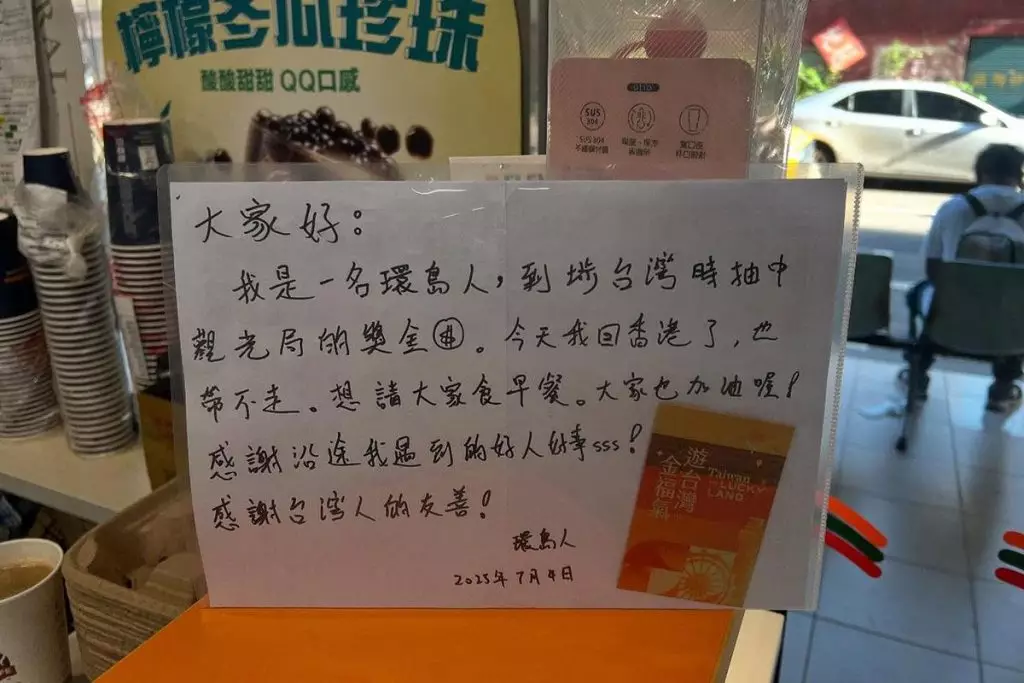 檸檬冬瓜珍珠
酸酸甜甜 QQ口感
SUS
304
大家好：
我是一名環島人，到埗台灣時抽中
觀光局的獎金㊉。今天我回香港了，也
帶不走。想請大家食早餐。大家也加油喔！
感謝沿途我遇到的好人好事sss！
感謝台灣人的友善！
環島人
2025年7月4日
遊台灣
金福氣
Taiwan
LUCKY
LAND